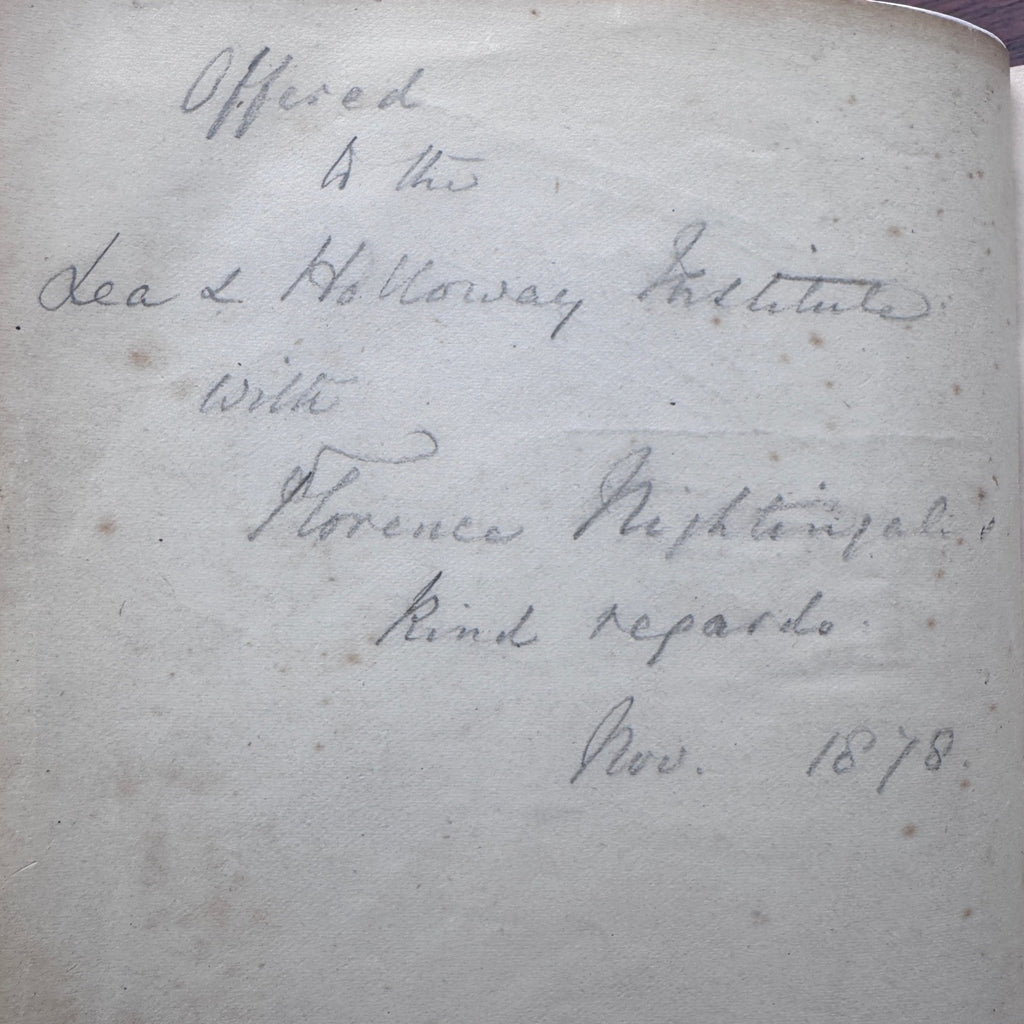 Offered
to the
Lea & Holloway Institute
with
Florence Nightingale's
kind regards
Nov. 1878.